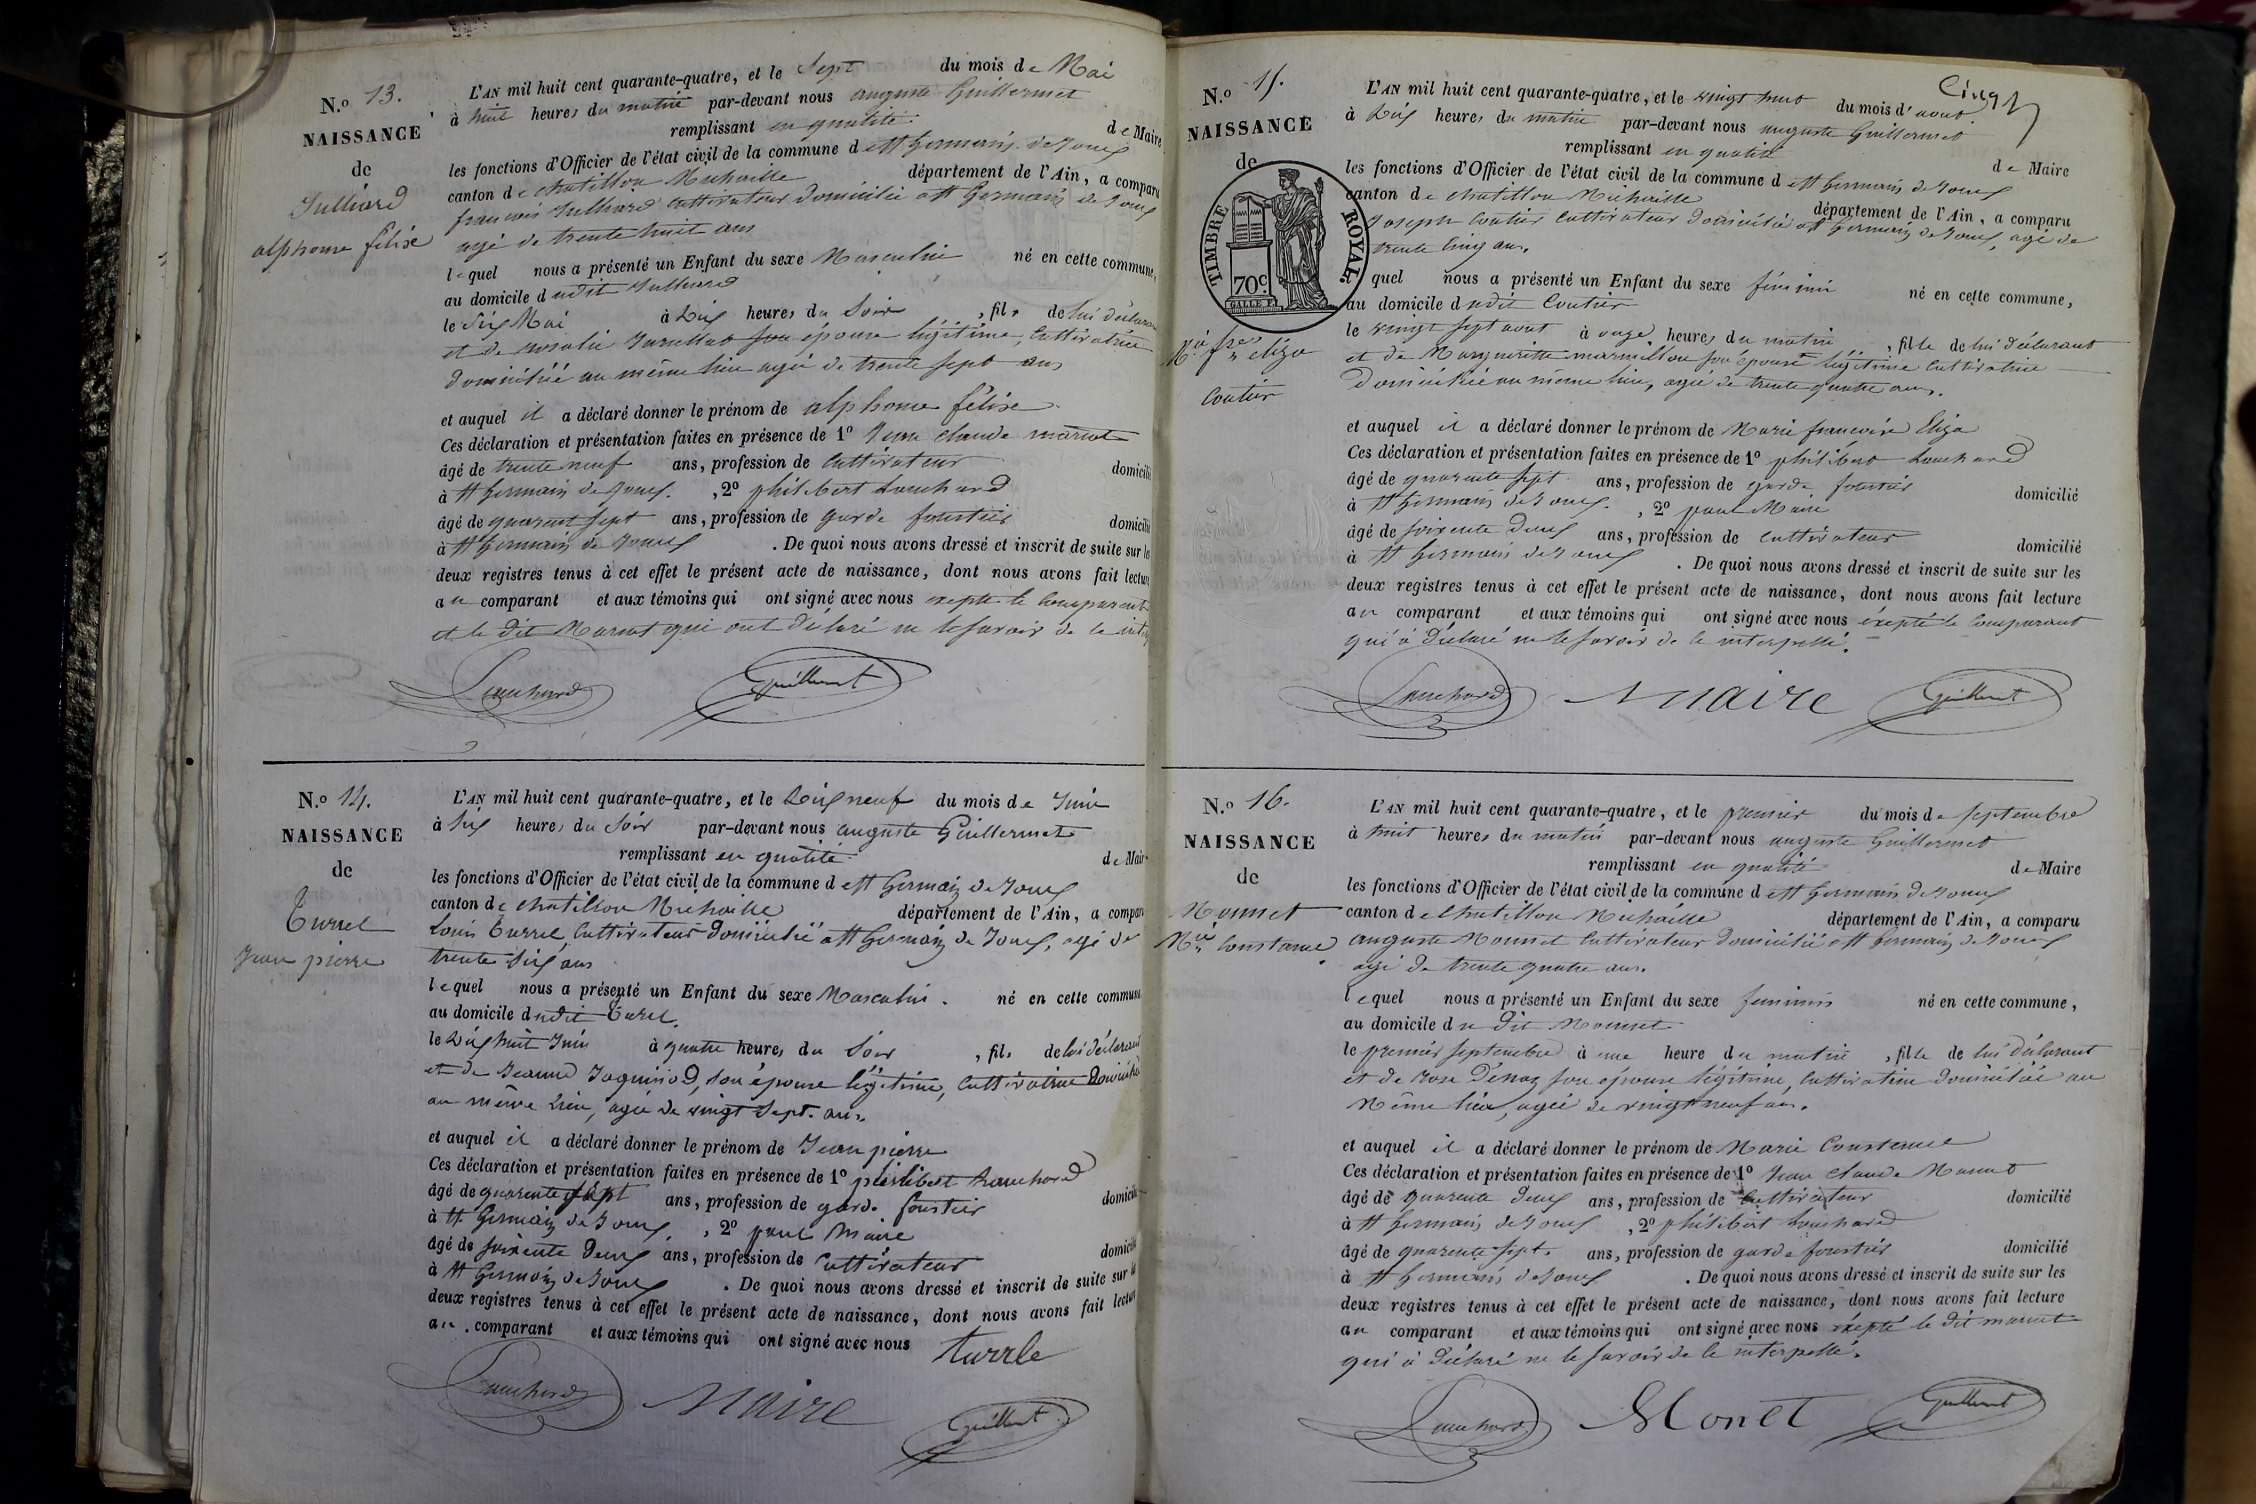 N.o 13.
NAISSANCE
de
Julliard
alphonse félise
L'AN mil huit cent quarante-quatre, et le Sept du mois de Mai
à huit heures du matin par-devant nous auguste Guillermet
remplissant en qualité de Maire
les fonctions d'Officier de l'état civil de la commune de St Germain de Joux
canton de chatillon Michaille département de l'Ain, a comparu
francois Julliard cultivateur domicilié a St Germain de Joux
agé de trente huit ans
lequel nous a présenté un Enfant du sexe Masculin né en cette commune,
au domicile dudit Julliard
le Six Mai à dix heures du Soir, fils de lui déclarant
et de rosalie son épouse légitime, cultivatrice
domiciliée au même lieu agée de trente sept ans
et auquel il a déclaré donner le prénom de alphonse félise
Ces déclaration et présentation faites en présence de 1o Jean claude
âgé de trente neuf ans, profession de cultivateur domicilié
à St Germain de Joux. , 2o philibert
âgé de quarent sept ans, profession de garde forestier domicilié
à St Germain de Joux . De quoi nous avons dressé et inscrit de suite sur les
deux registres tenus à cet effet le présent acte de naissance, dont nous avons fait lecture
au comparant et aux témoins qui ont signé avec nous exepté le comparant
et le dit qui ont déclaré ne le savoir de ce
Guillermet
N.o 14.
NAISSANCE
de
Turrel
Jean pierre
L'AN mil huit cent quarante-quatre, et le dix neuf du mois de Juin
à six heures du Soir par-devant nous auguste Guillermet
remplissant en qualité de Maire
les fonctions d'Officier de l'état civil de la commune de St Germain de Joux
canton de chatillon Michaille département de l'Ain, a comparu
Louis Turrel, cultivateur domicilié a St Germain de Joux, agé de
trente six ans
lequel nous a présenté un Enfant du sexe Masculin. né en cette commune
au domicile dudit Turel.
le dix huit Juin à quatre heures du Soir, fils de lui déclarant
et de Jeanne Joquinod, son épouse légitime, cultivatrice domiciliée
au même lieu, agée de vingt sept. ans.
et auquel il a déclaré donner le prénom de Jean pierre
Ces déclaration et présentation faites en présence de 1o philibert
âgé de quarente sept ans, profession de garde forestier domicilié
à St Germain de Joux, , 2o paul Maire
âgé de soixente deux ans, profession de cultivateur domicilié
à St Germain de Joux . De quoi nous avons dressé et inscrit de suite sur les
deux registres tenus à cet effet le présent acte de naissance, dont nous avons fait lecture
au comparant et aux témoins qui ont signé avec nous
turrle
Maire
Guillermet
Cinq
N.o 15.
NAISSANCE
de
TIMBRE ROYAL.
70c.
GALLE F.
Mie fse eliza
Coutier
L'AN mil huit cent quarante-quatre, et le vingt huit du mois d'aout.
à dix heures du matin par-devant nous auguste Guillermet
remplissant en qualité de Maire
les fonctions d'Officier de l'état civil de la commune de St Germain de Joux
canton de chatillon Michaille département de l'Ain, a comparu
Joseph Coutier cultivateur domicilié a St Germain de Joux, agé de
trente cinq ans.
quel nous a présenté un Enfant du sexe féminin né en cette commune,
au domicile dudit Coutier
le vingt sept aout à onze heures du matin, fille de lui déclarant
et de Marguerite marmillon son épouse légitime cultivatrice
domiciliée au même lieu, agée de trente quatre ans.
et auquel il a déclaré donner le prénom de Marie francoise Eliza
Ces déclaration et présentation faites en présence de 1o philibert
âgé de quarente sept ans, profession de garde forestier
à St Germain de Joux. , 2o paul Maire domicilié
âgé de soixente deux ans, profession de cultivateur
à St Germain de Joux . De quoi nous avons dressé et inscrit de suite sur les domicilié
deux registres tenus à cet effet le présent acte de naissance, dont nous avons fait lecture
au comparant et aux témoins qui ont signé avec nous éxepté le comparant
qui à déclaré ne le savoir de ce interpellé.
Maire
Guillermet
N.o 16.
NAISSANCE
de
Monnet
Mie Constance
L'AN mil huit cent quarante-quatre, et le premier du mois de septembre
à huit heures du matin par-devant nous auguste Guillermet
remplissant en qualité de Maire
les fonctions d'Officier de l'état civil de la commune de St Germain de Joux
canton de chatillon Michaille département de l'Ain, a comparu
auguste Monnet cultivateur domicilié a St Germain de Joux
agé de trente quatre ans.
lequel nous a présenté un Enfant du sexe feminin né en cette commune,
au domicile du dit Monnet
le premier septembre à une heure du matin, fille de lui déclarant
et de rose son épouse légitime, cultivatrice domiciliée au
même lieu, agée de vingt neuf ans.
et auquel il a déclaré donner le prénom de Marie Constance
Ces déclaration et présentation faites en présence de 1o Jean claude
âgé de quarente deux ans, profession de cultivateur domicilié
à St Germain de Joux , 2o philibert
âgé de quarente sept. ans, profession de garde forestier domicilié
à St Germain de Joux . De quoi nous avons dressé et inscrit de suite sur les
deux registres tenus à cet effet le présent acte de naissance, dont nous avons fait lecture
au comparant et aux témoins qui ont signé avec nous éxepté le dit
qui à déclaré ne le savoir de ce interpellé.
Monet
Guillermet